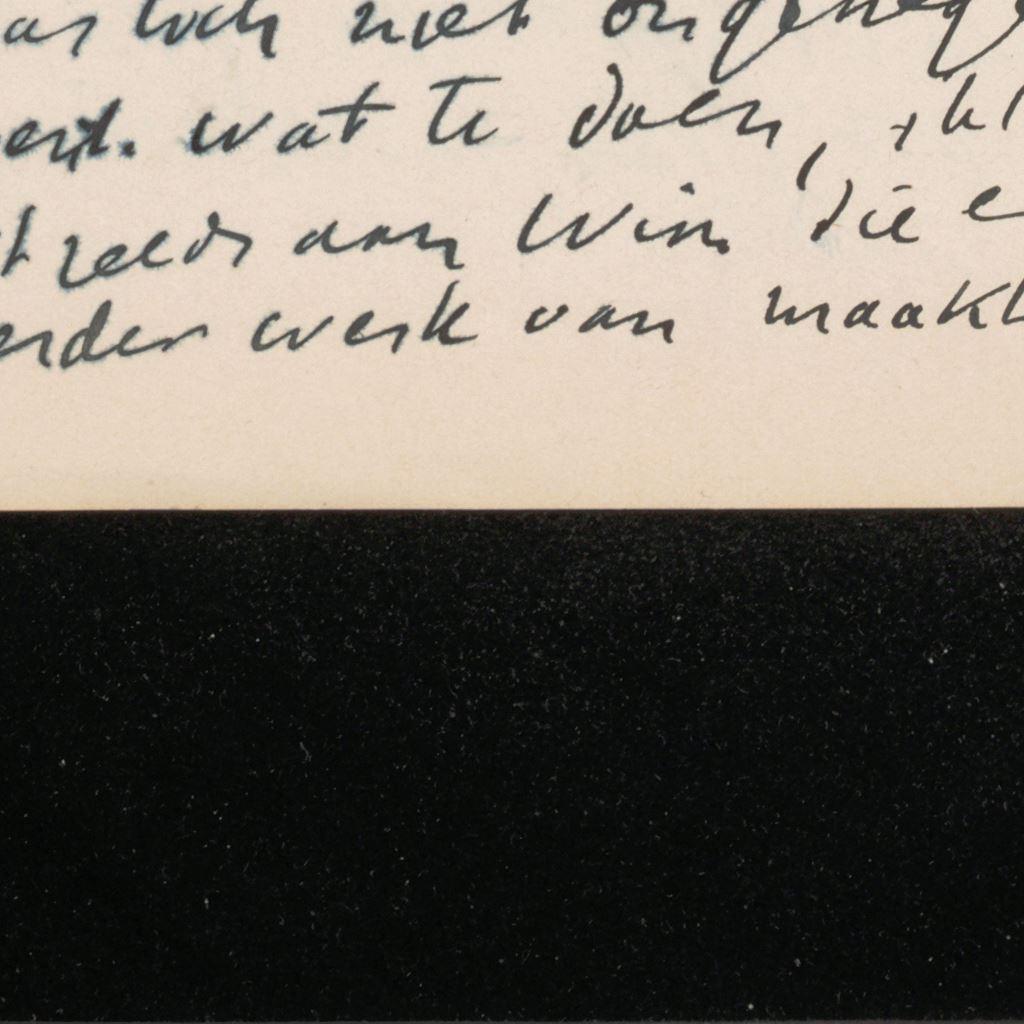 as toch niet ongeneg
wat te doen, ik
zeide aan Wim die e
erder werk van maakt